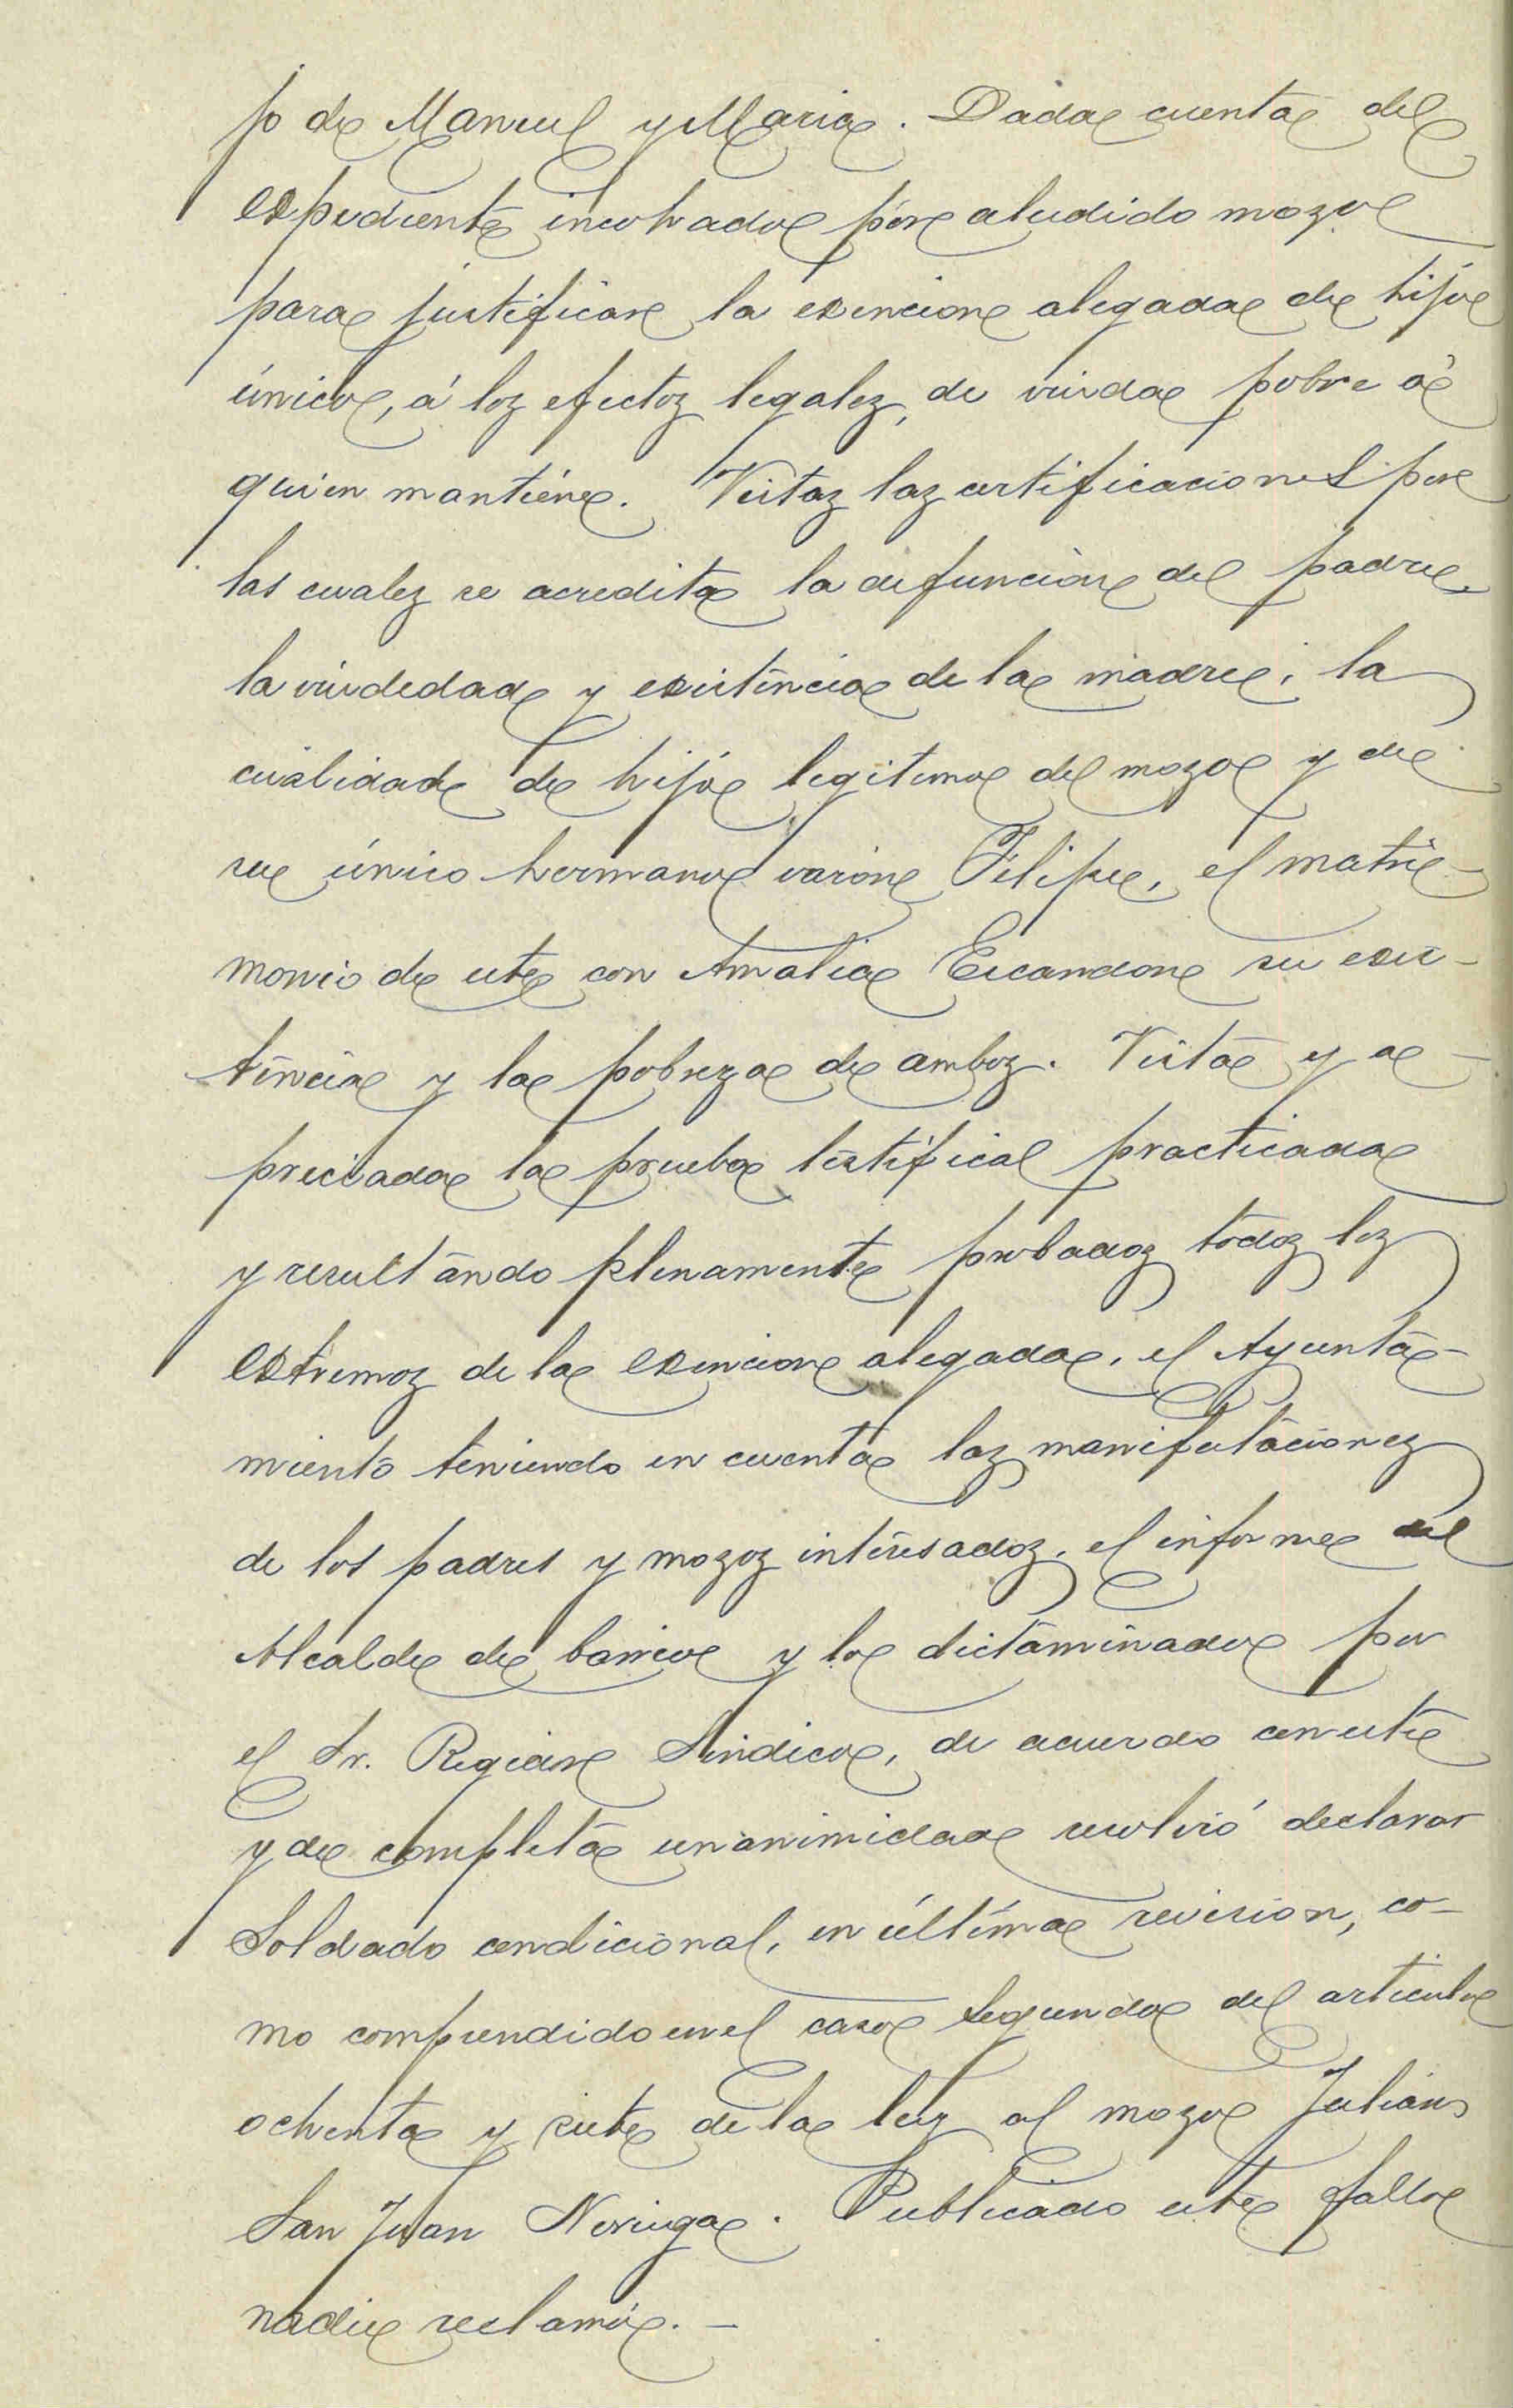 jo de Manuel y Maria. Dada cuenta del
expediente incohado por aludido mozo
para justificar la exencion alegada de hijo
único, á los efectos legales, de viuda pobre á
quien mantiene. Vistas las certificaciones por
las cuales se acredita la defunción del padre,
la viudedad y existencia de la madre; la
cualidad de hijo legitimo del mozo y de
su único hermano varón Felipe, el matri-
monio de este con Amalia Escandon su exis-
tencia y la pobreza de ambos. Vista y a-
preciada la prueba testifical practicada
y resultando plenamente probados todos los
extremos de la exencion alegada, el Ayunta-
miento teniendo en cuenta las manifestaciones
de los padres y mozos interesados, el informe del
Alcalde de barrio y lo dictaminado por
el Sr. Regidor Sindico, de acuerdo con este
y de completa unanimidad resolvió declarar
Soldado condicional, en última revision, co-
mo comprendido en el caso segundo del articulo
ochenta y siete de la ley al mozo Julián
San Juan Noriega. Publicado este fallo
nadie reclamó. —